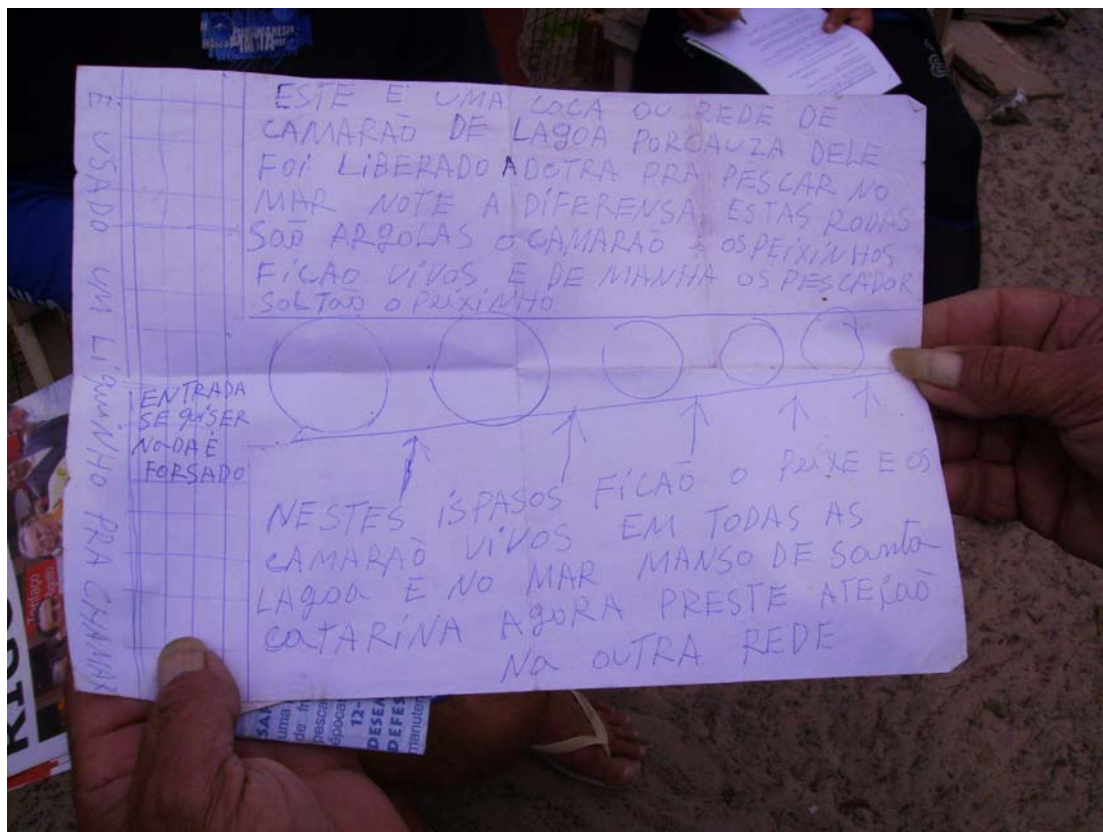 ESTE E UMA COCA OU REDE DE
CAMARAÕ DE LAGOA PORCAUZA DELE
FOI LIBERADO A DOTRA PRA PESCAR NO
MAR NOTE A DIFERENSA ESTAS RODAS
SAÕ ARGOLAS O CAMARAÕ OS PEIXINHOS
FICAO VIVOS E DE MANHA OS PESCADOR
SOLTAÕ O PEIXINHO
E USADO UM LIQUINHO PRA CHAMAR
ENTRADA
SE QUISER
NO DA É
FORSADO
NESTES ISPASOS FICAÕ O PEIXE E OS
CAMARAÕ VIVOS EM TODAS AS
LAGOA E NO MAR MANSO DE SANTA
CATARINA AGORA PRESTE ATEÇAÕ
NA OUTRA REDE
uma
de
pesca
épocas
12-
DEFES
manuten